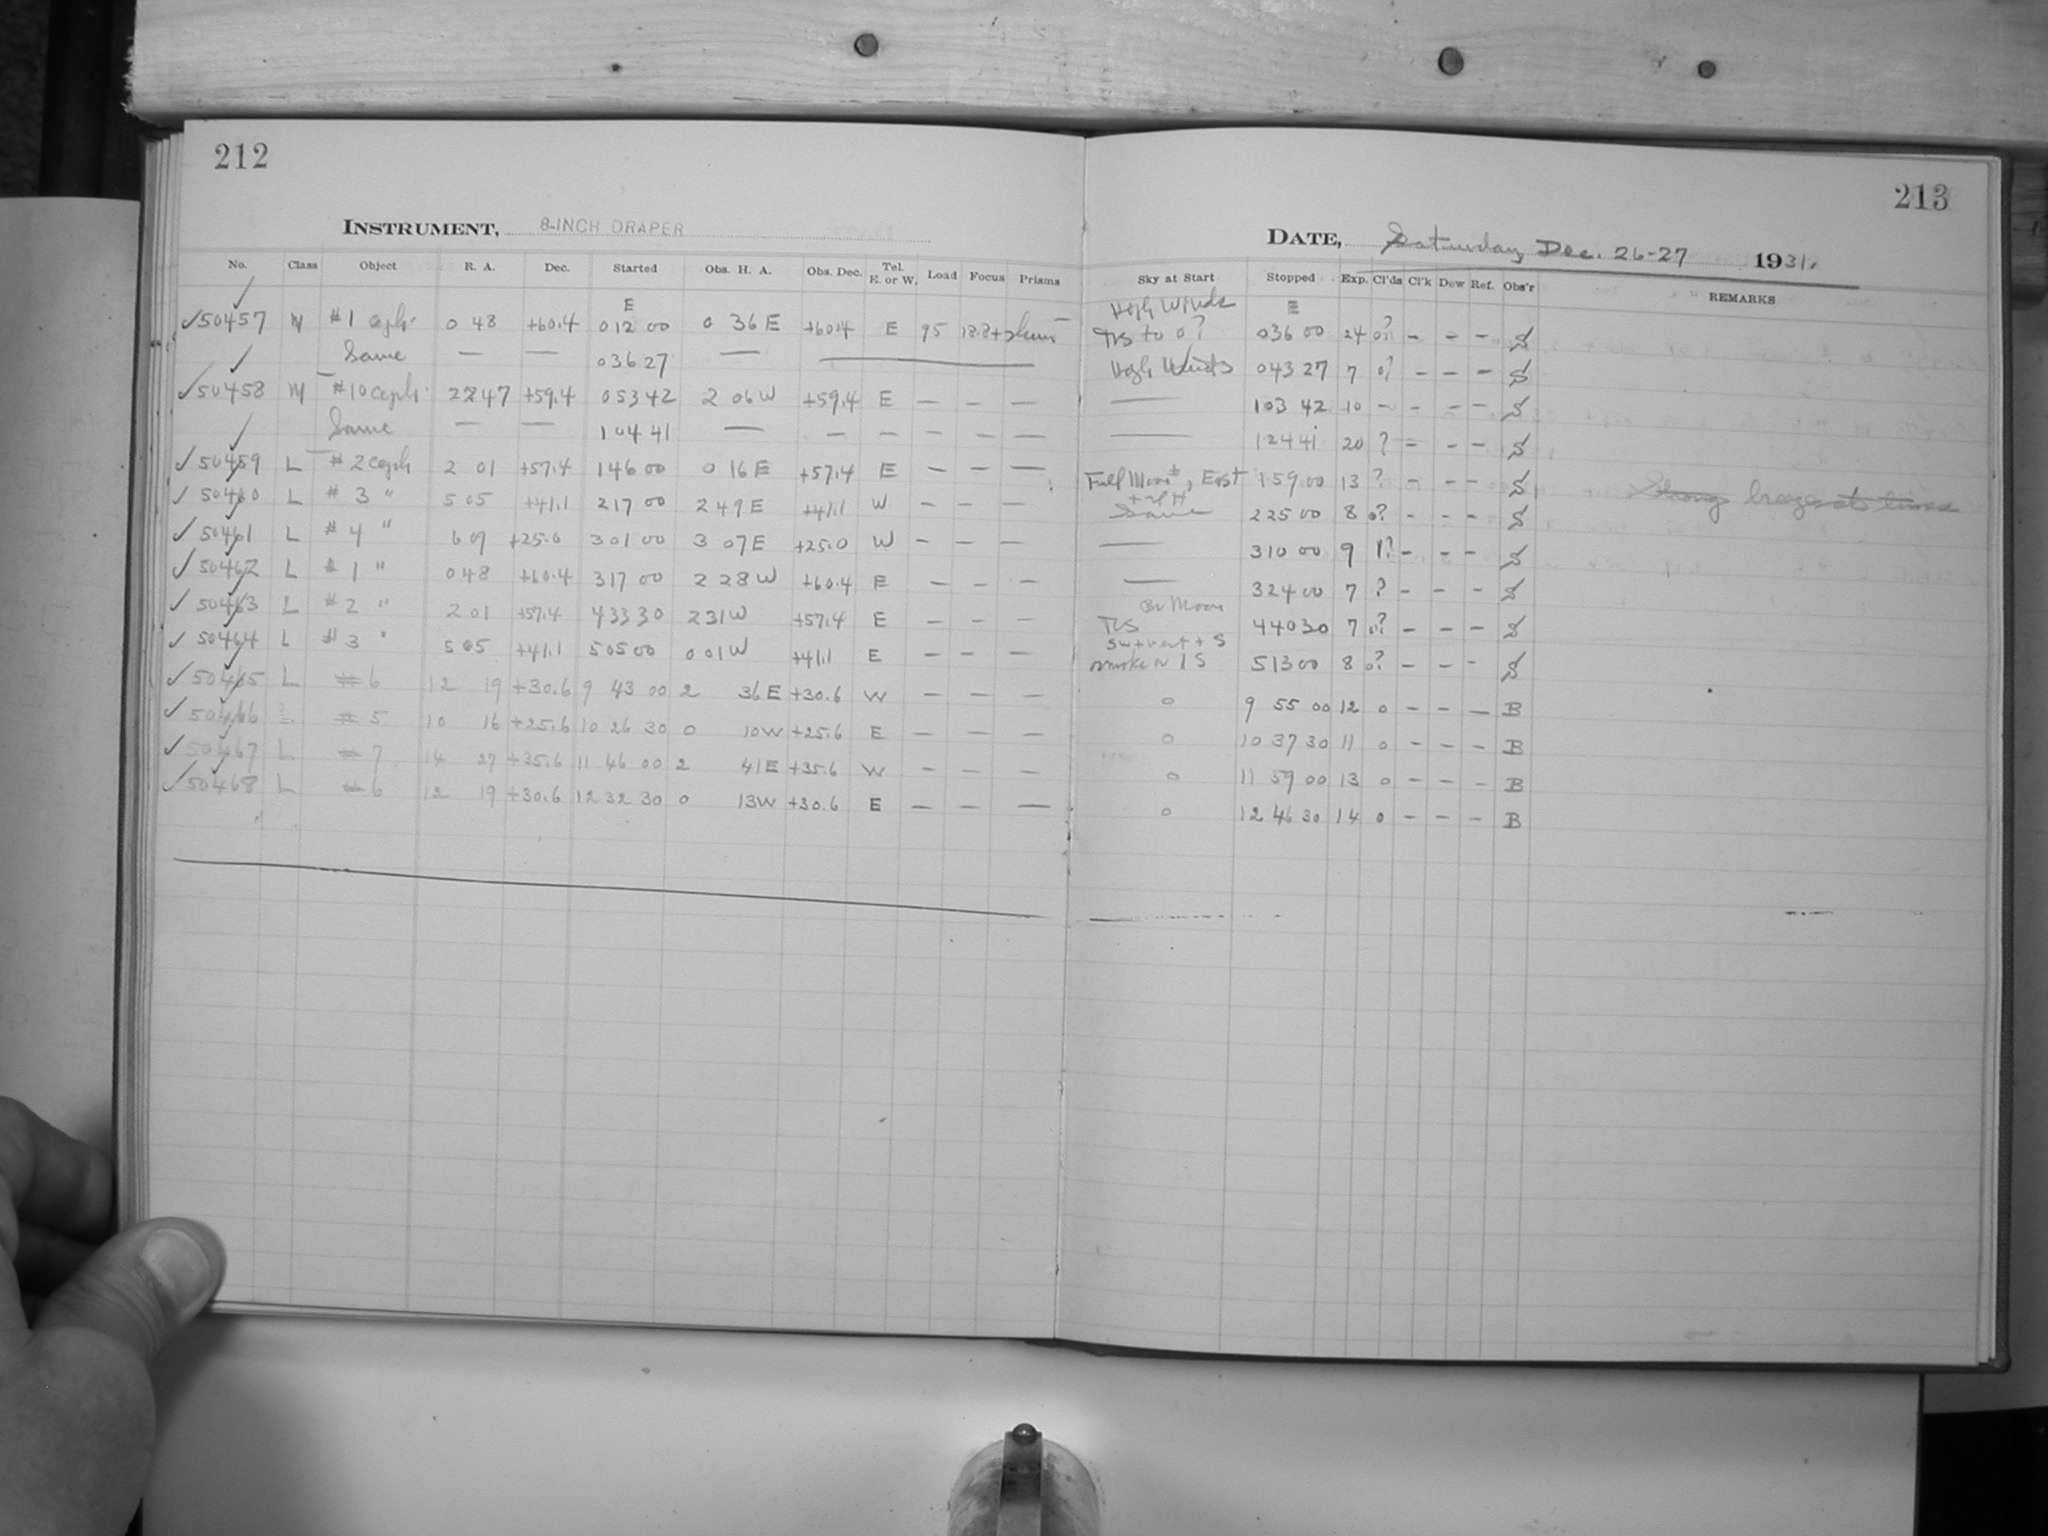 212
INSTRUMENT, 8-INCH DRAPER
No. Class Object R. A. Dec. Started Obs. H. A. Obs. Dec. Tel. E. or W. Load Focus Prisms
E
✓50457 M #1 ceph. 0 48 +60.4 0 12 00 0 36 E +60.4 E 95 18.8+
Same — — 03 6 27 —
✓50458 M #10 ceph. 22 47 +59.4 0 53 42 2 06 W +59.4 E — — —
Same — — 1 04 41 — — — — — —
✓50459 L #2 ceph 2 01 +57.4 1 46 00 0 16 E +57.4 E — — —
✓50460 L #3 " 5 05 +41.1 2 17 00 2 49 E +41.1 W — — —
✓50461 L #4 " 6 09 +25.0 3 01 00 3 07 E +25.0 W — — —
✓50462 L #1 " 0 48 +60.4 3 17 00 2 28 W +60.4 E — — —
✓50463 L #2 " 2 01 +57.4 4 33 30 2 31 W +57.4 E — — —
✓50464 L #3 " 5 05 +41.1 5 05 00 0 01 W +41.1 E — — —
✓50465 L #6 12 19 +30.6 9 43 00 2 36 E +30.6 W — — —
✓50466 L #5 10 16 +25.6 10 26 30 0 10 W +25.6 E — — —
✓50467 L #7 14 27 +35.6 11 46 00 2 41 E +35.6 W — — —
✓50468 L #6 12 19 +30.6 12 32 30 0 13 W +30.6 E — — —
213
DATE, Saturday Dec. 26-27 1931.
Sky at Start Stopped Exp. Cl'ds Cl'k Dew Ref. Obs'r REMARKS
High Winds E
to 0? 0 36 00 24 0? — — — S
High Winds 0 43 27 7 0? — — — S
— 1 03 42 10 — — — — S
— 1 24 41 20 ? — — — S
Full Moon±, East 1 59 00 13 ? — — — S
Same 2 25 00 8 0? — — — S Strong breeze at times
— 3 10 00 9 1? — — — S
— 3 24 00 7 ? — — — S
Moon
4 40 30 7 0? — — — S
smoke S 5 13 00 8 0? — — — S
0 9 55 00 12 0 — — — B
0 10 37 30 11 0 — — — B
0 11 59 00 13 0 — — — B
0 12 46 30 14 0 — — — B